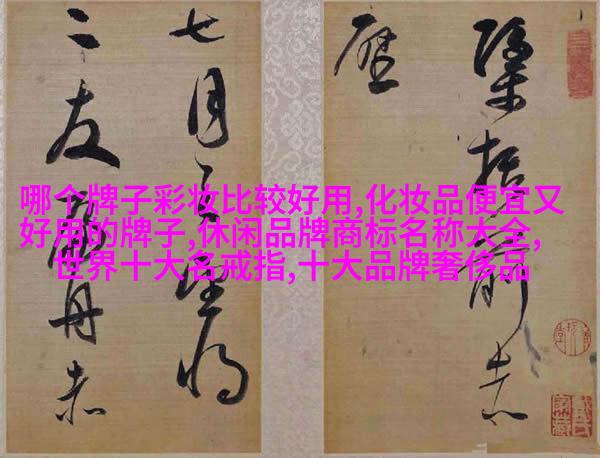 哪个牌子彩妆比较好用,化妆品便宜又
好用的牌子,休闲品牌商标名称大全,
世界十大名戒指,十大品牌奢侈品
括前赤
壁
七月望
二友舟赤